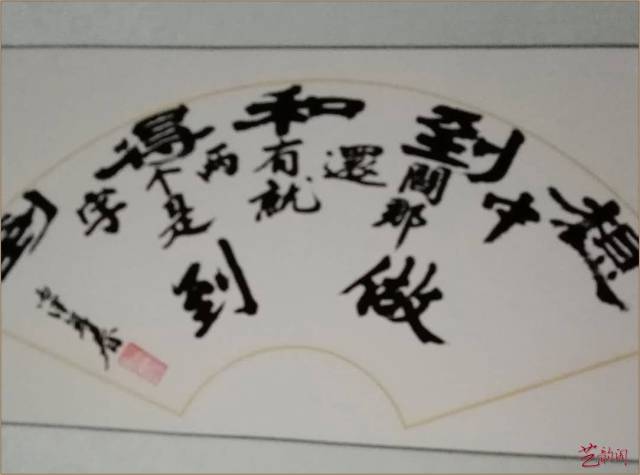 想到和得到
中間還有兩个字
那就是
做到
艺韵阁